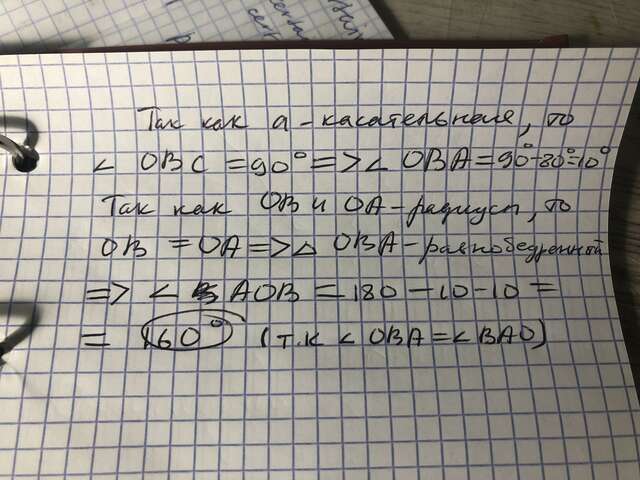 Так как a - касательная, то
∠ OBC = 90° => ∠ OBA = 90° - 80° = 10°
Так как OB и OA - радиусы, то
OB = OA => △ OBA - равнобедренный
=> ∠ AOB = 180 - 10 - 10 =
= 160° (т.к ∠ OBA = ∠ BAO)